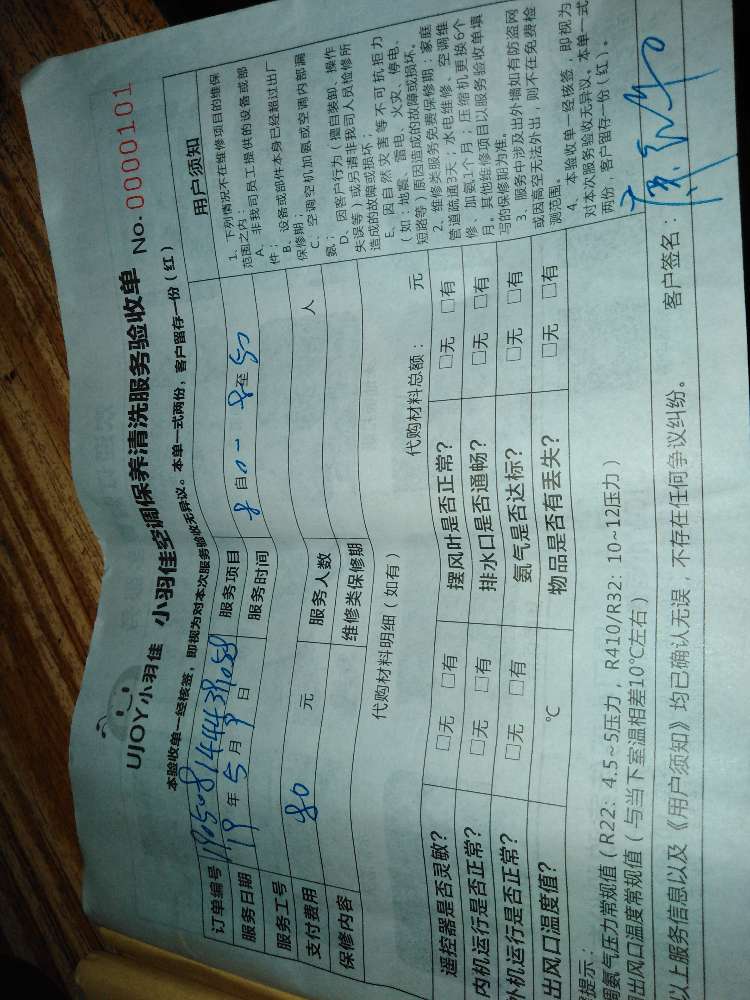 UJOY小羽佳 小羽佳空调保养清洗服务验收单 No.0000101
本验收单一经核签，即视为对本次服务验收无异议。本单一式两份，客户留存一份（红）
订单编号 服务项目
服务日期 19年5月9日 服务时间 自 至
服务工号 服务人数 人
支付费用 80 元 维修类保修期
保修内容
代购材料明细（如有） 代购材料总额： 元
遥控器是否灵敏？ □无 □有 摆风叶是否正常？ □无 □有
内机运行是否正常？ □无 □有 排水口是否通畅？ □无 □有
外机运行是否正常？ □无 □有 氨气是否达标？ □无 □有
出风口温度值？ ℃ 物品是否有丢失？ □无 □有
提示：
氨气压力常规值（R22：4.5~5压力，R410/R32：10~12压力）
出风口温度常规值（与当下室温相差10℃左右）
以上服务信息以及《用户须知》均已确认无误，不存在任何争议纠纷。
客户签名：
用户须知
1、下列情况不在维修项目的维保
范围之内：
A、非我司员工提供的设备或部
件；
B、设备或部件本身已经超过出厂
保修期；
C、空调空机加氨或空调内部漏
氨；
D、因客户行为（擅自装卸、操作
失误等）或另请非我司人员检修所
造成的故障或损坏；
E、因自然灾害等不可抗拒力
（如：地震、雷电、火灾、停电、
短路等）原因造成的故障或损坏。
2、维修类服务免费保修期：家庭
管道疏通3天；水电维修、空调维
修、加氨1个月；压缩机更换6个
月。其他维修项目以服务验收单填
写的保修期为准。
3、服务中涉及出外墙如有防盗网
或因高空无法外出，则不在免费检
测范围。
4、本验收单一经核签，即视为
对本次服务验收无异议。本单一式
两份，客户留存一份（红）。